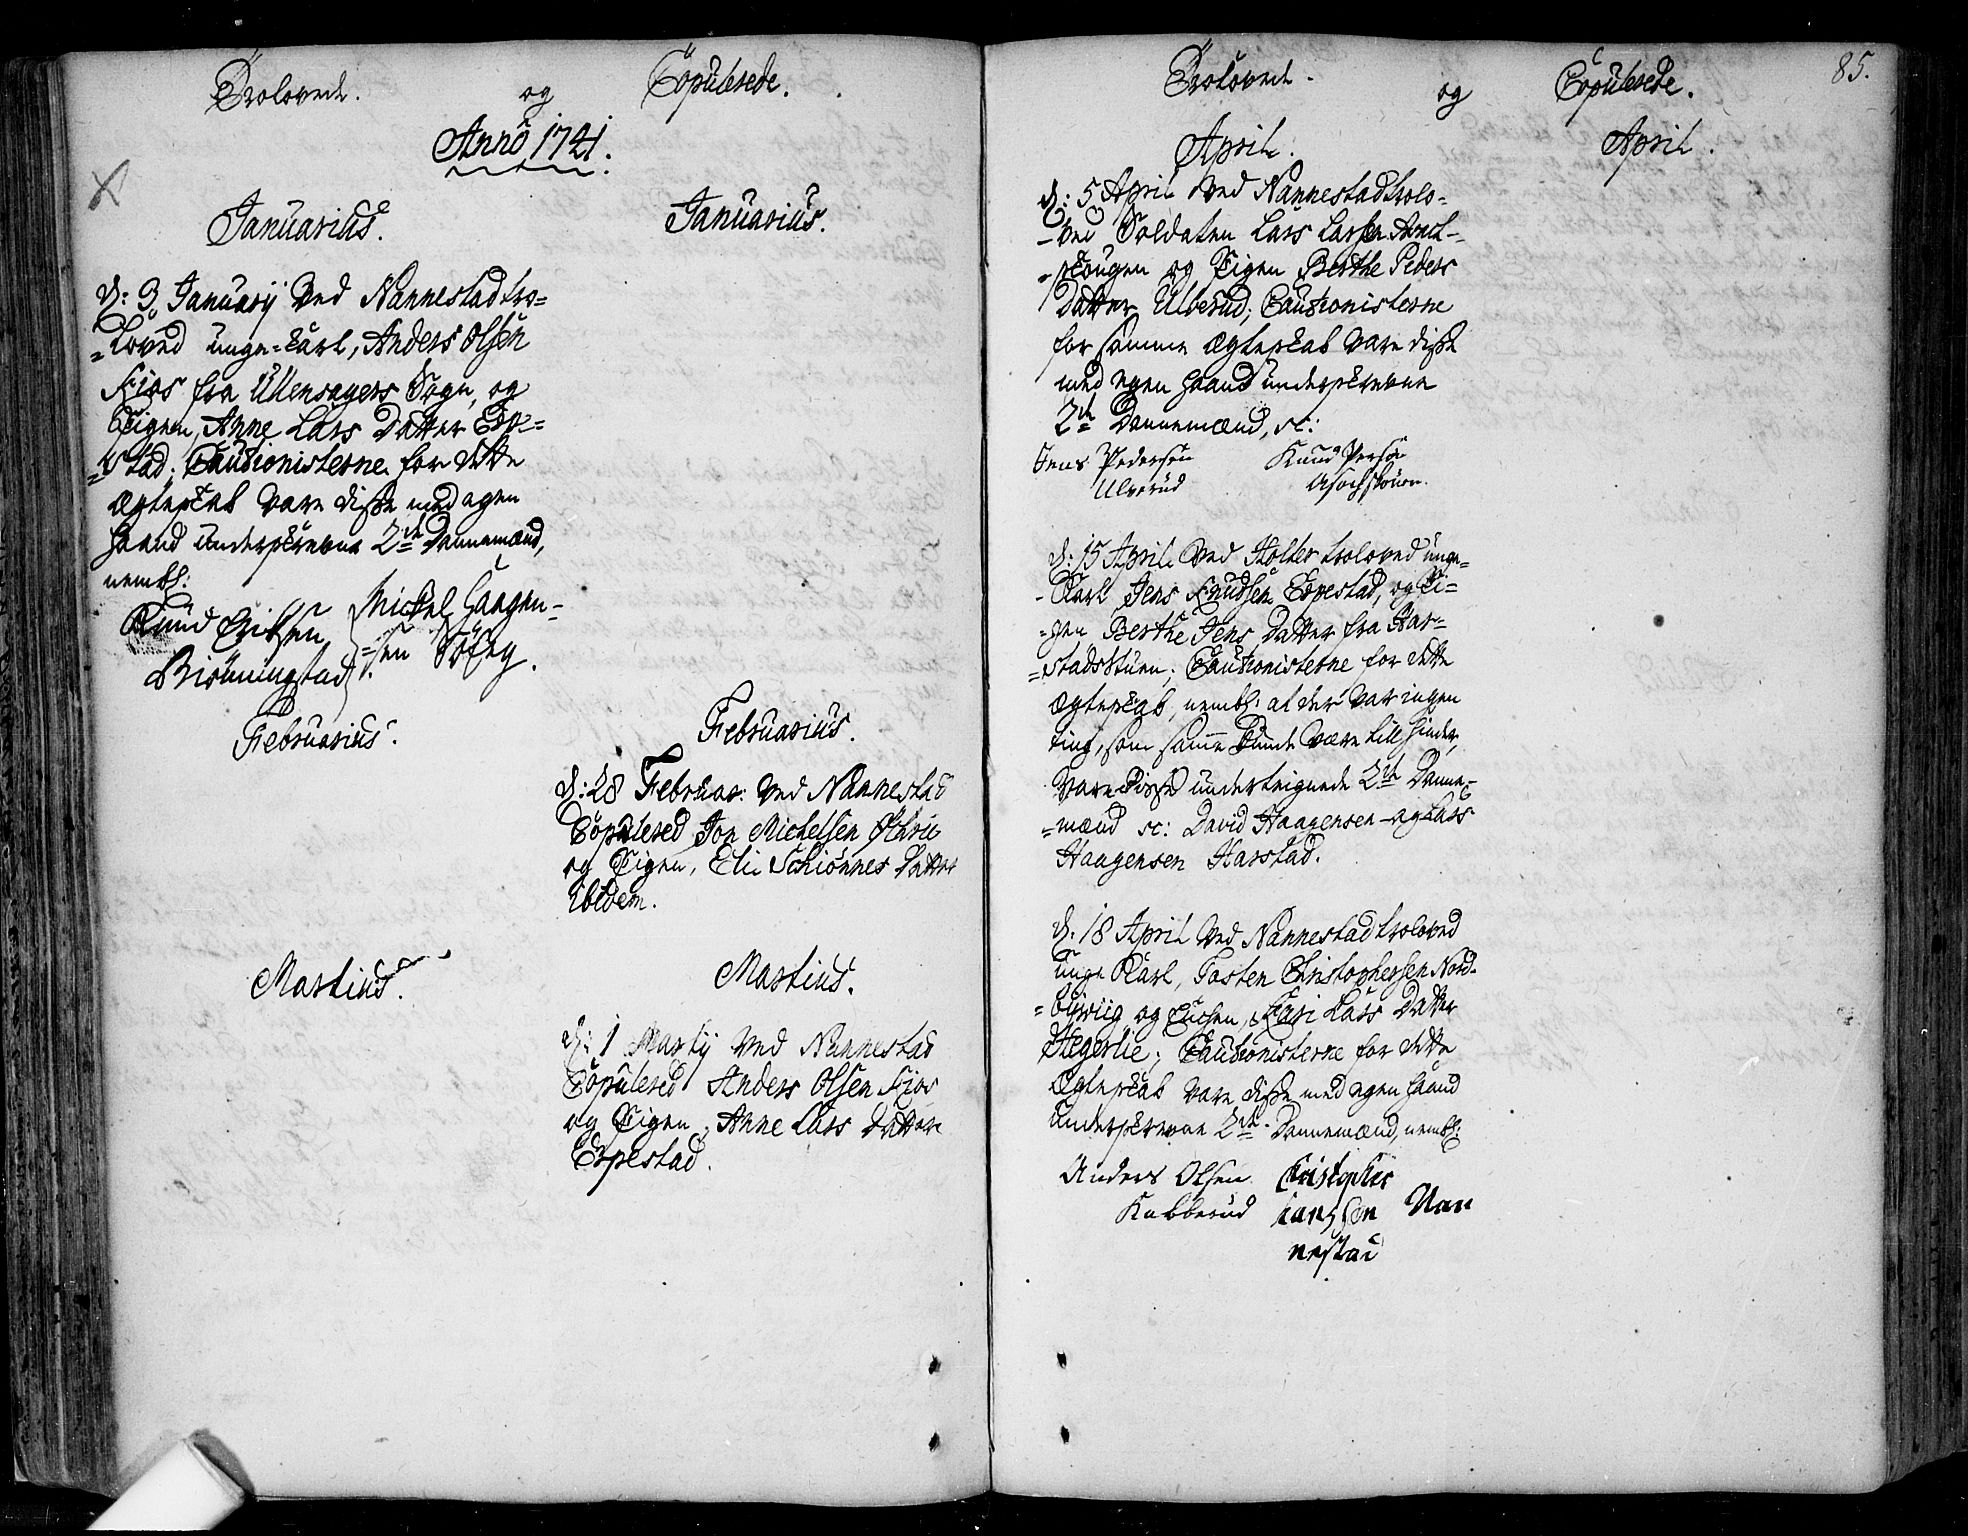 Trolovede.
og
Copulerede.
Anno 1741.
Januarius.
d: 3 Januarij ved Nannestad tro-
-loved unge-karl, Anders Olsen
Kios fra Ullensagers Sogn, og
Pigen, Anne Lars Datter Espe-
-stad; Cautionisterne for dette
Ægteskab vare disse med egen
haand underskrevne 2de Dannemænd,
nembl:
Knud Erichsen
Biønningstad
Michel Haagen-
-sen
Februarius.
Martius.
Januarius.
Februarius.
d: 28 Februar: ved Nannestad
Copulered Jon Michelsen
og Pigen, Eli Schiønnes Datter
ibidem.
Martius.
d: 1 Martij ved Nannestad
Copulered Anders Olsen Kios
og Pigen, Anne Lars Datter
Espestad.
Trolovede.
og
Copulerede.
85.
April.
d: 5 April ved Nannestad trolo-
-ved Soldaten Lars Larsen
-skougen og Pigen Berthe Peders
Datter Ulverud; Cautionisterne
for samme Ægteskab vare disse
med egen haand underskrevne
2de Dannemænd, sc:
Jens Pedersen
Ulverud
Knud Persen
d: 15 April ved Holter troloved unge-
-Karl Jens Knudsen Espestad, og Pi-
-gen Berthe Jens Datter fra Har-
-stadstuen; Cautionisterne for dette
Ægteskab, nembl: at der var ingen
ting, som samme kunde være till hinder,
vare disse undertegnede 2de Danne-
-mænd sc: David Haagensen og Lars
Haagensen Harstad.
d: 18 April ved Nannestad troloved
unge Karl, Tosten Christophersen Nord-
-byeiig og Enchen, Kari Lars Datter
Hegerlie; Cautionisterne for dette
Ægteskab vare disse med egen haand
underskrevne 2de Dannemænd, nembl:
Anders Olsen
Kabberud
Christopher
Larssen Nan
nestad
April.